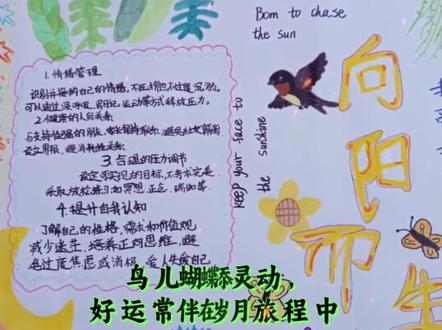 Born to chase
the sun
1.情绪管理
识别并接纳自己的情绪，不压抑也不过度沉溺。
可以通过深呼吸、写日记、运动等方式释放压力。
2.健康的人际关系
设立界限，避免
3.合理的压力调节
设定现实的目标，不苛求完美
采取放松练习如冥想、正念、瑜伽等
4.提升自我认知
了解自己的性格、需求和价值观
减少迷茫，培养正向思维，避
免过度焦虑或消极，爱人先爱自己
keep your face to
the sunshine
向
阳
而
生
鸟儿蝴蝶添灵动，
好运常伴在岁月旅程中